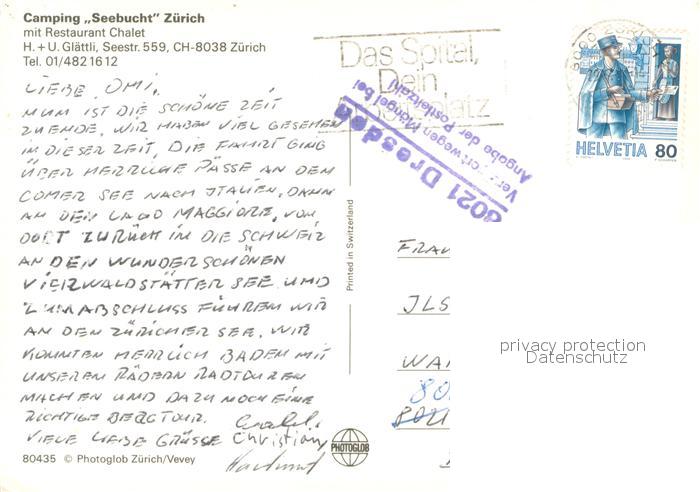 Camping „Seebucht" Zürich
mit Restaurant Chalet
H. + U. Glättli, Seestr. 559, CH-8038 Zürich
Tel. 01/482 16 12
LIEBE OMI,
NUN IST DIE SCHÖNE ZEIT
ZUENDE. WIR HABEN VIEL GESEHEN
IN DIESER ZEIT, DIE FAHRT GING
ÜBER HERRLICHE PÄSSE AN DEN
COMER SEE NACH ITALIEN, DANN
AN DEN LAGO MAGGIORE, VON
DORT ZURÜCK IN DIE SCHWEIZ
AN DEN WUNDERSCHÖNEN
VIERWALDSTÄTTER SEE UND
ZUM ABSCHLUSS FUHREN WIR
AN DEN ZÜRICHER SEE. WIR
KONNTEN HERRLICH BADEN MIT
UNSEREN RÄDERN RADTOUREN
MACHEN UND DAZU NOCH EINE
RICHTIGE BERGTOUR.
VIELE LIEBE GRÜSSE Christian,
80435 © Photoglob Zürich/Vevey
PHOTOGLOB
Printed in Switzerland
Das Spital,
Dein
8021 Dresden
wegen Mängel bei
Angabe der Postleitzahl
HELVETIA 80
FRAU
ILS
WA
80
privacy protection
Datenschutz